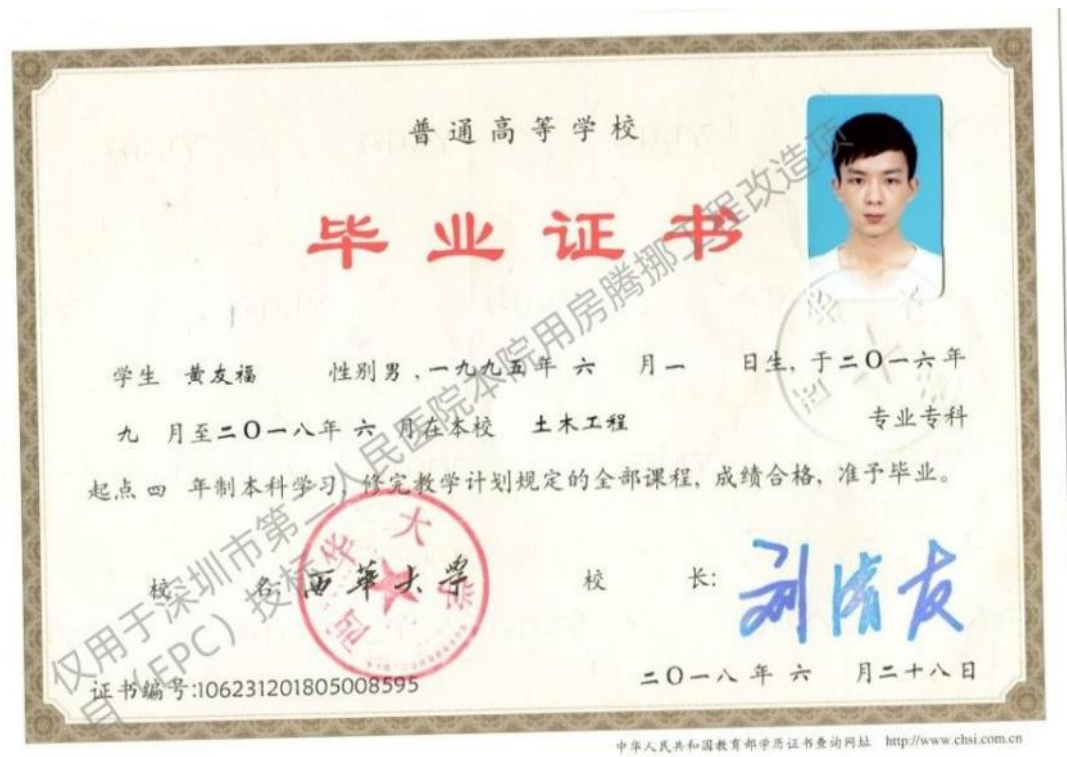 普通高等学校
毕业证书
学生 黄友福 性别男，一九九五年 六 月一 日生，于二〇一六年
九 月至二〇一八年 六 月在本校 土木工程 专业专科
起点 四 年制本科学习，修完教学计划规定的全部课程，成绩合格，准予毕业。
校 名：西華大學
校 长：刘清友
西华大学
证书编号:106231201805008595
二〇一八年 六 月二十八日
中华人民共和国教育部学历证书查询网址 http://www.chsi.com.cn
仅用于深圳市第二人民医院本院用房腾挪工程改造项
目（EPC）投标